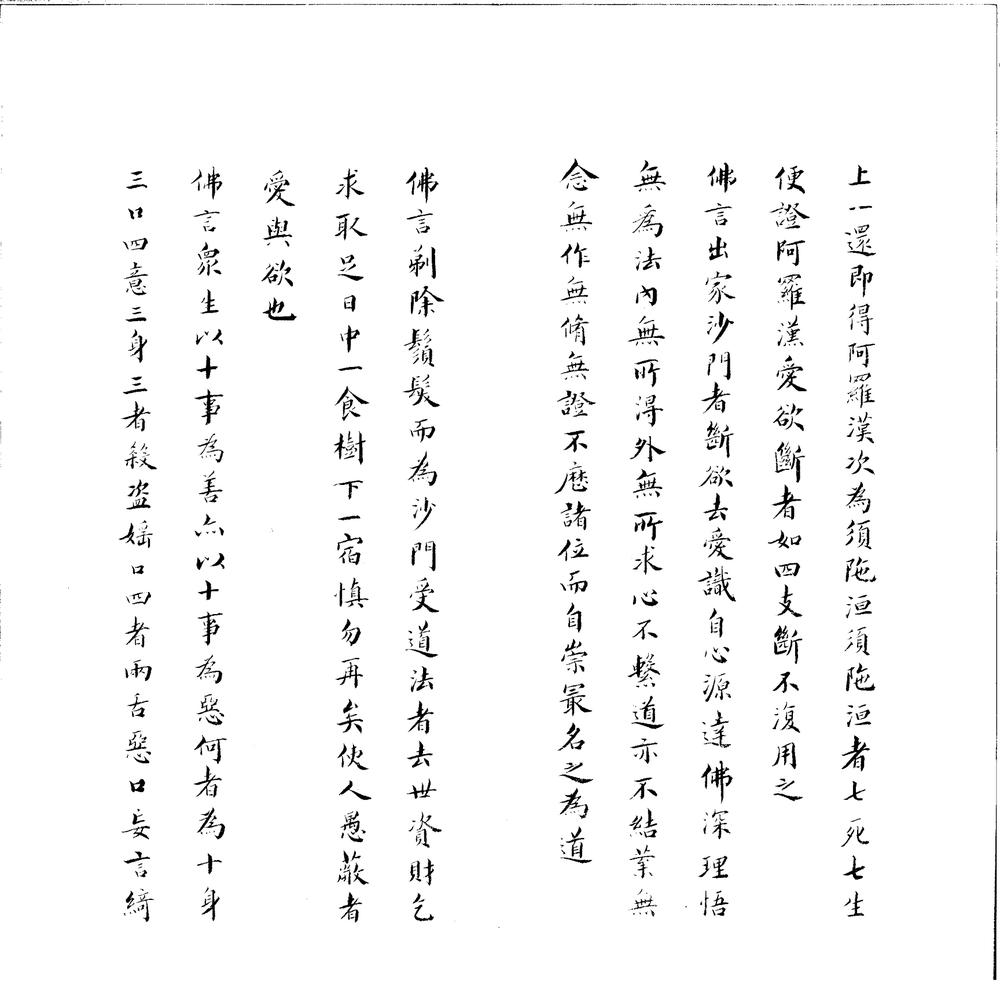 上一還即得阿羅漢次為須陁洹須陁洹者七死七生
便證阿羅漢愛欲斷者如四支斷不復用之
佛言出家沙門者斷欲去愛識自心源達佛深理悟
無為法內無所得外無所求心不繫道亦不結業無
念無作無脩無證不歷諸位而自崇最名之為道
佛言剃除鬚髮而為沙門受道法者去世資財乞
求取足日中一食樹下一宿慎勿再矣使人愚蔽者
愛與欲也
佛言眾生以十事為善亦以十事為惡何者為十身
三口四意三身三者殺盗婬口四者兩舌惡口妄言綺